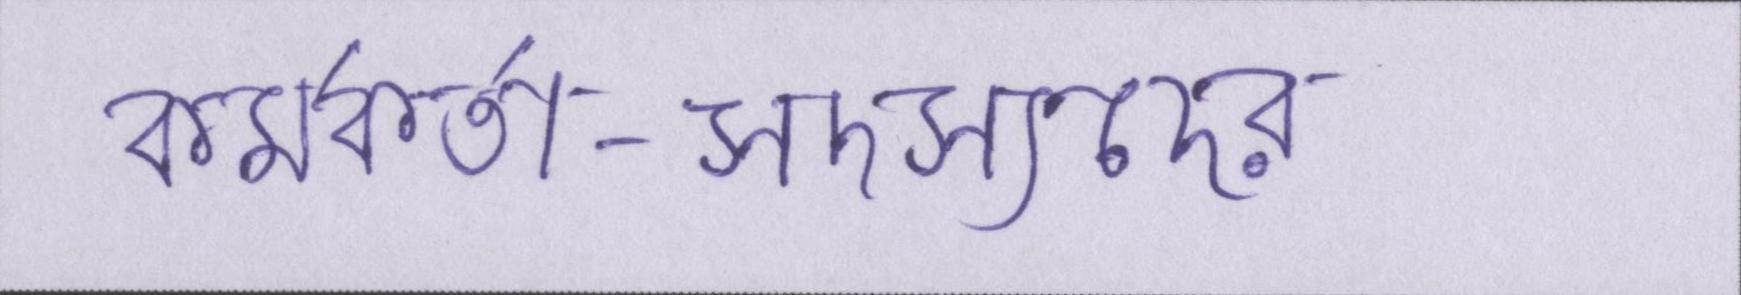 কর্মকর্তা-সদস্যদের